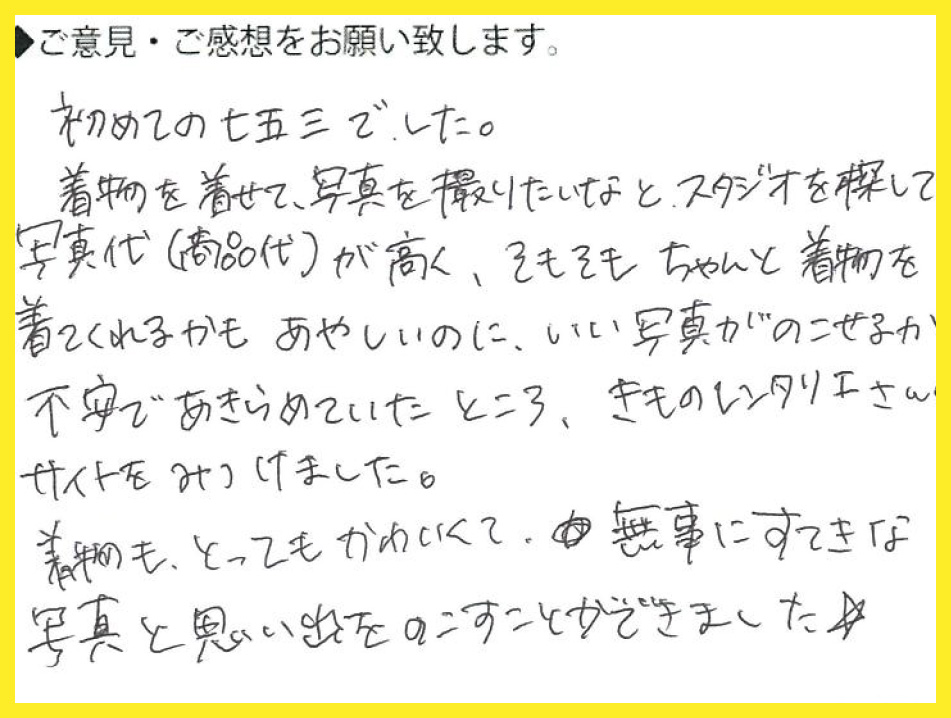 ◆ご意見・ご感想をお願い致します。
初めての七五三でした。
着物を着せて、写真を撮りたいなと、スタジオを探して
写真代(商品代)が高く、そもそもちゃんと着物を
着てくれるかもあやしいのに、いい写真がのこせるか
不安であきらめていたところ、きものレンタリエさん
サイトをみつけました。
着物も、とってもかわいくて、無事にすてきな
写真と思い出をのこすことができました☆